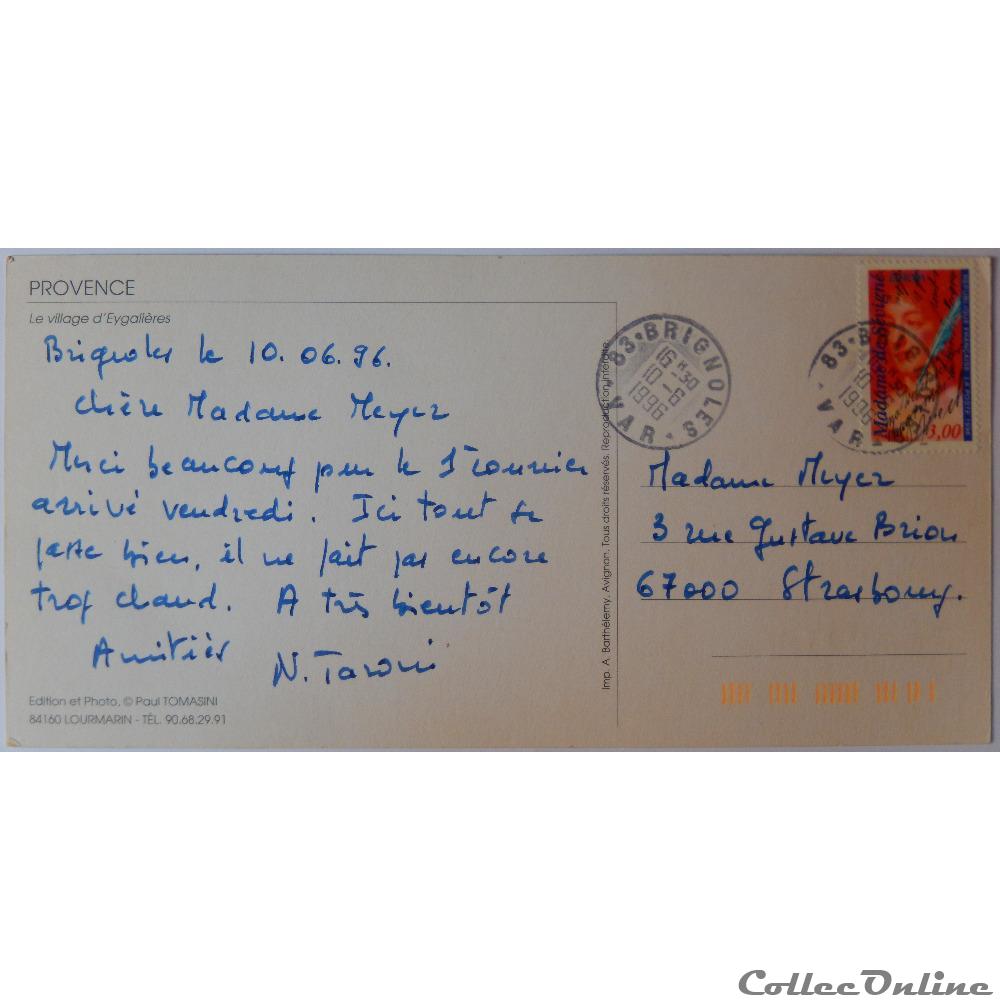 PROVENCE
Le village d'Eygalières
Brignoles le 10.06.96.
Chère Madame Meyer
Merci beaucoup pour le 1er courrier
arrivé vendredi. Ici tout se
passe bien, il ne fait pas encore
trop chaud. A très bientôt
Amitiés
N. Taroni
Edition et Photo, © Paul TOMASINI
84160 LOURMARIN - TÉL. 90.68.29.91
Imp. A. Barthélemy, Avignon. Tous droits réservés. Reproduction interdite.
83 • BRIGNOLES
16 H 30
10 - 6
1996
VAR
83 • BRIGNOLES
10
1996
VAR
Madame de Sévigné
3,00
Madame Meyer
3 rue Gustave Brion
67000 Strasbourg.
CollecOnline